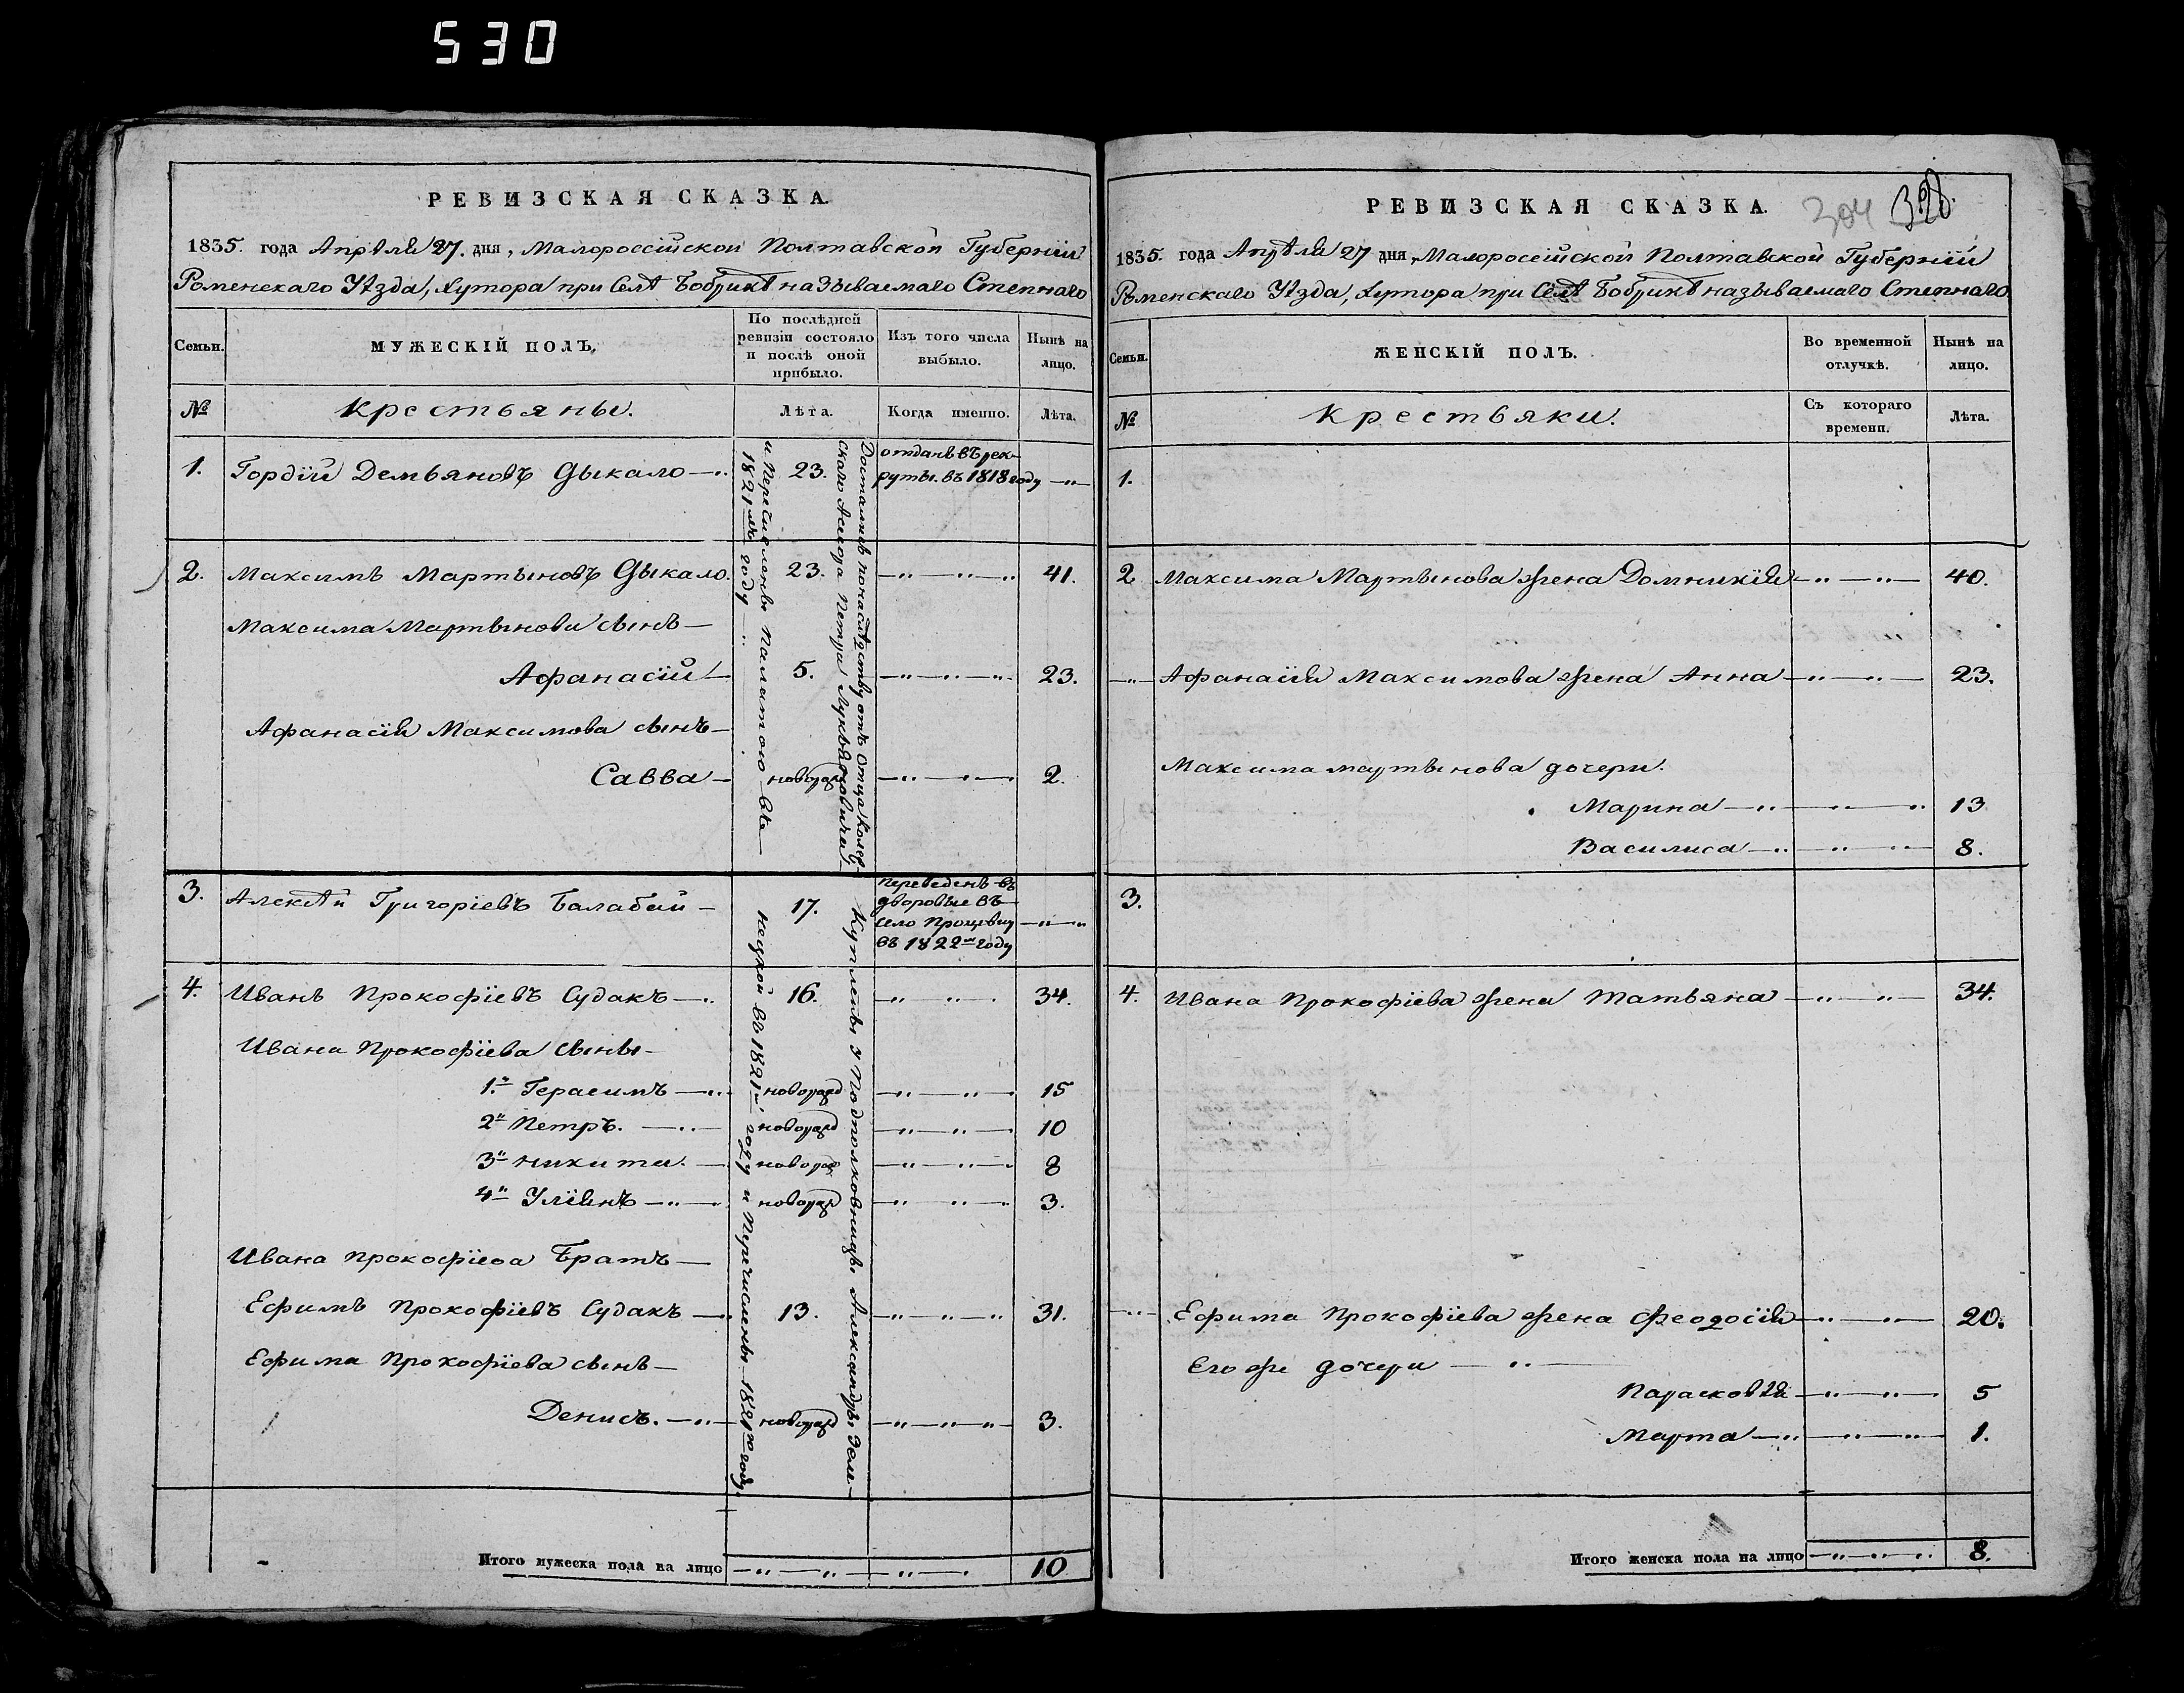 530
РЕВИЗСКАЯ СКАЗКА.
1835. года Апрѣля 27. дня, Малороссійской Полтавской Губерніи
Роменскаго Уѣзда, Хутора при Селѣ Бобрикѣ называемаго Степнаго
Семьи.
МУЖЕСКІЙ ПОЛЪ.
По послѣдней ревизіи состояло и послѣ оной прибыло.
Изъ того числа выбыло.
Нынѣ на лицо.
№
Крестьяне.
Лѣта.
Когда именно.
Лѣта.
Досталисъ понаслѣдству отъ отца Колеж-
скаго Асесора Петра Лукьяновича
и Перечислены Палатою въ
1821мъ году
1. Гордій Демьяновъ Дыкало 23. отданъ въ рек-
руты. въ 1818 году
2. Максимъ Мартыновъ Дыкало. 23. 41.
Максима Мартынова сынъ
Афанасій 5. 23.
Афанасія Максимова сынъ
Савва новорожд 2.
3. Алексѣй Григоріевъ Балабай 17. переведенъ въ
дворовые въ
село
въ 1822м году
Куплены у Подполковницы Александры
въ 1821м году и Перечислены 1821го году.
4. Иванъ Прокофіевъ Судакъ 16. 34.
Ивана Прокофіева сыны
1й Герасимъ новорожд 15
2й Петръ. новорожд 10
3й Никита. новорож 8
4й Уліянъ новорожд 3.
Ивана Прокофіева Братъ
Ефимъ Прокофіевъ Судакъ 13. 31.
Ефима Прокофіева сынъ
Денисъ. новорожд 3.
Итого мужеска пола на лицо 10
РЕВИЗСКАЯ СКАЗКА. 304 320
1835. года Апрѣля 27 дня, Малороссійской Полтавской Губерніи
Роменскаго Уѣзда, Хутора при Селѣ Бобрикѣ называемаго Степнаго
Семьи.
ЖЕНСКІЙ ПОЛЪ.
Во временной отлучкѣ.
Нынѣ на лицо.
№
Крестьяки.
Съ котораго времени.
Лѣта.
1.
2 Максима Мартынова жена Домникія 40.
Афанасія Максимова жена Анна 23.
Максима мартынова дочери.
Марина 13
Василиса 8.
3.
4. Ивана Прокофіева жена Татьяна 34.
Ефима Прокофіева жена Феодосія 20.
Его же дочери
Парасковія 5
Марта 1.
Итого женска пола на лицо 8.